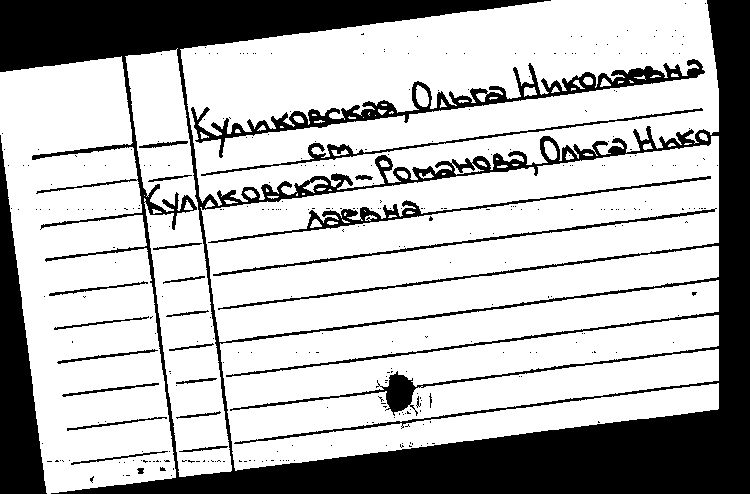 Куликовская, Ольга Николаевна
см.
Куликовская-Романова, Ольга Нико-
лаевна.